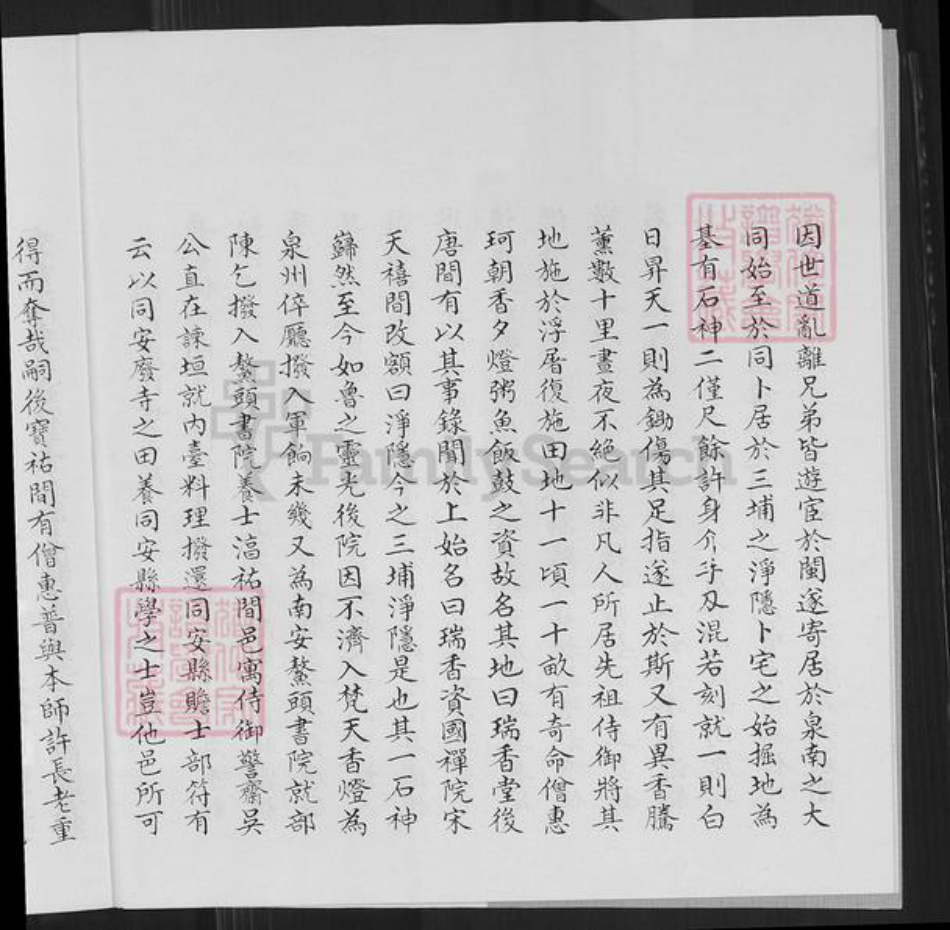 因世道亂離兄弟皆遊宦於閩遂寄居於泉南之大
同始至於同卜居於三埔之淨隱卜宅之始掘地為
基有石神二僅尺餘許身介乎及混若刻就一則白
日昇天一則為鋤傷其足指遂止於斯又有異香騰
薰數十里晝夜不絕似非凡人所居先祖侍御將其
地施於浮屠復施田地十一頃一十畝有奇命僧惠
珂朝香夕燈粥魚飯鼓之資故名其地曰瑞香堂後
唐間有以其事錄聞於上始名曰瑞香資國禪院宋
天禧間改額曰淨隱今之三埔淨隱是也其一石神
巋然至今如魯之靈光後院因不濟入梵天香燈為
泉州倅廳撥入軍餉未幾又為南安鰲頭書院就部
陳乞撥入鰲頭書院養士湻祐間邑寓侍御警齋吳
公直在諫垣就內臺料理撥還同安縣贍士部符有
云以同安廢寺之田養同安縣學之士豈他邑所可
得而奪哉嗣後寶祐間有僧惠普與本師許長老重
FamilySearch